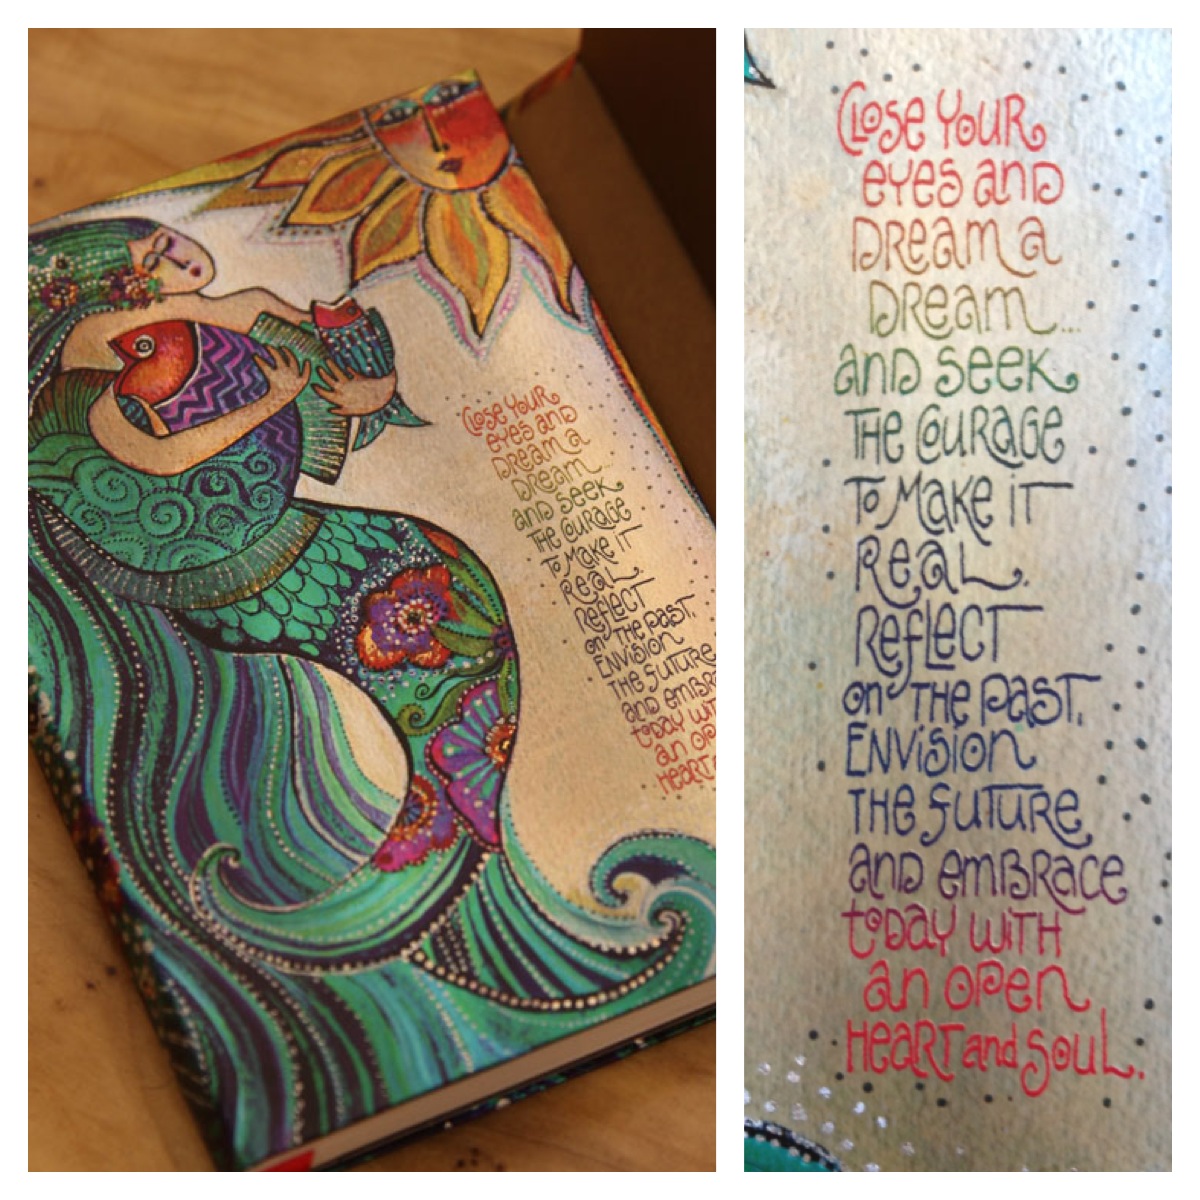 Close Your
eyes and
Dream a
Dream...
and seek
The Courage
To Make iT
Real.
Reflect
on The Past.
Envision
The Future
and embr
today wit
an op
Heart
Close Your
eyes and
Dream a
Dream...
and seek
The Courage
To Make iT
Real.
Reflect
on The Past.
Envision
The Future
and embrace
today with
an open
Heart and Soul.